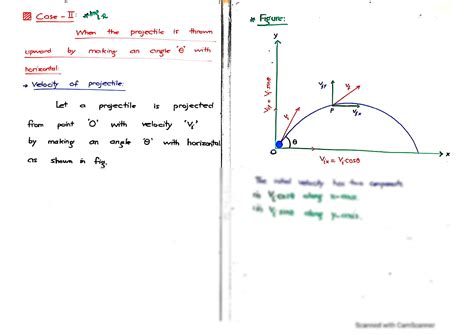 Case - II:
When the projectile is thrown
upward by making an angle 'θ' with
horizontal:
→ Velocity of projectile:
Let a projectile is projected
from point 'O' with velocity 'Vi'
by making an angle 'θ' with horizontal
as shown in fig.
* Figure:
y
Viy = Vi sinθ
Vi
θ
O
P
Vfy
Vf
Vfx
x
Vix = Vi cosθ
The initial velocity has two components
(i) Vi cosθ along x-axis.
(ii) Vi sinθ along y-axis.
Scanned with CamScanner